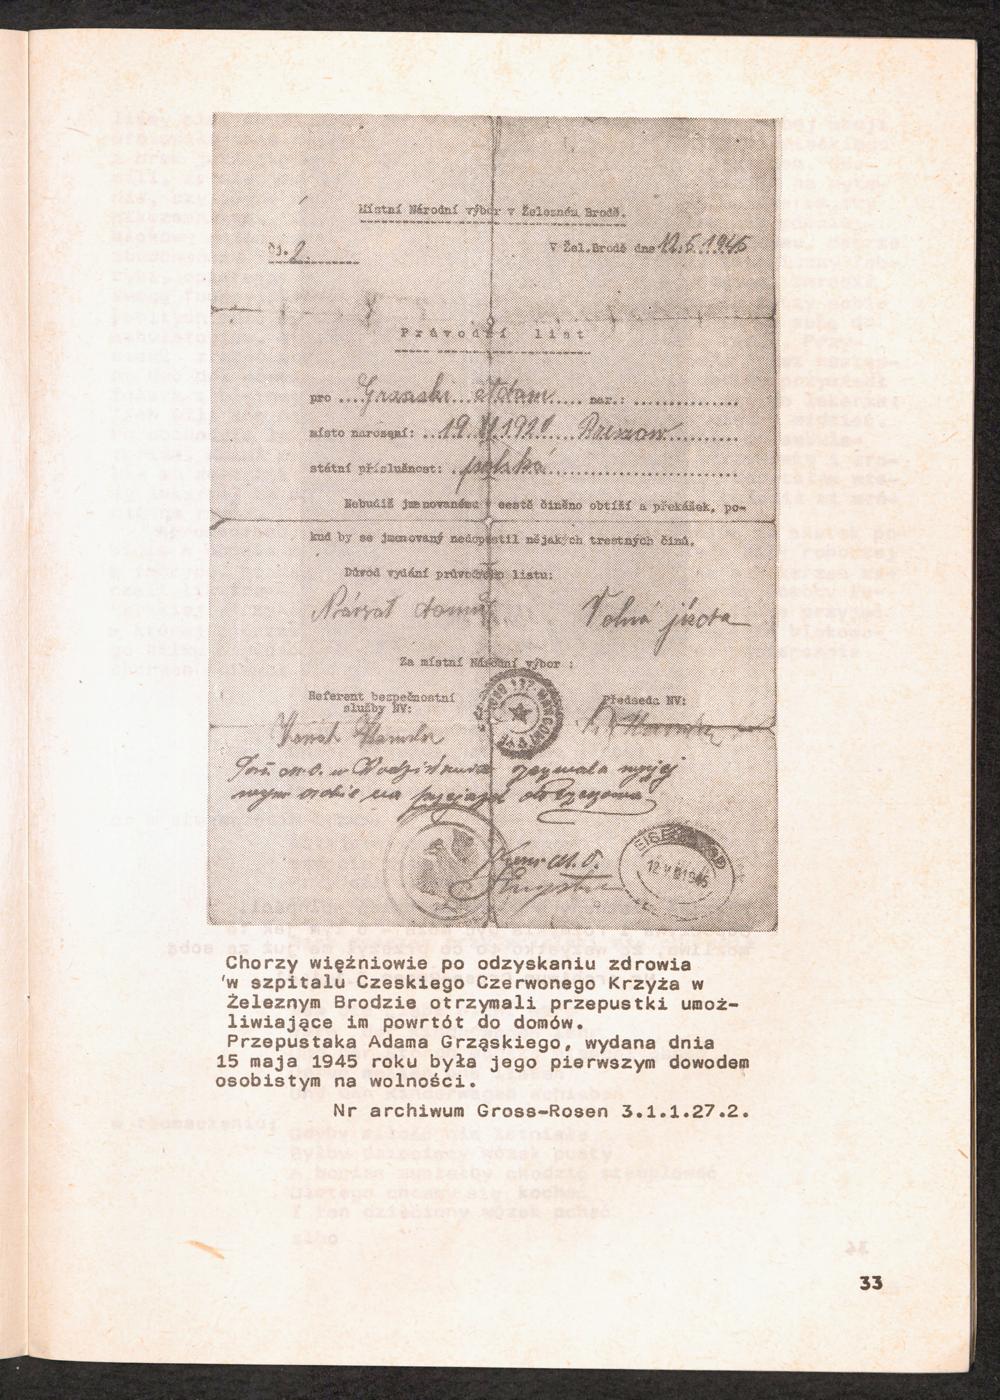 Místní Národní výbor v Železném Brodě.
Čj. 2.
V Žel.Brodě dne 12.5.1945
Průvodní list
pro ...Grzaski Adam... nar.: ..............
místo narození: ..19 VI 1920 Brzezow..........
státní příslušnost: ..polská..........................
Nebudiž jmenovanému v cestě činěno obtíží a překážek, po-
kud by se jmenovaný nedopustil nějakých trestných činů.
Důvod vydání průvodního listu:
Návrat domů
Volná jízda
Za místní Národní výbor :
Referent bezpečnostní
služby NV:
Předseda NV:
12 V 1945
Chorzy więźniowie po odzyskaniu zdrowia
'w szpitalu Czeskiego Czerwonego Krzyża w
Żeleznym Brodzie otrzymali przepustki umoż-
liwiające im powrtót do domów.
Przepustaka Adama Grząskiego, wydana dnia
15 maja 1945 roku była jego pierwszym dowodem
osobistym na wolności.
Nr archiwum Gross-Rosen 3.1.1.27.2.
33